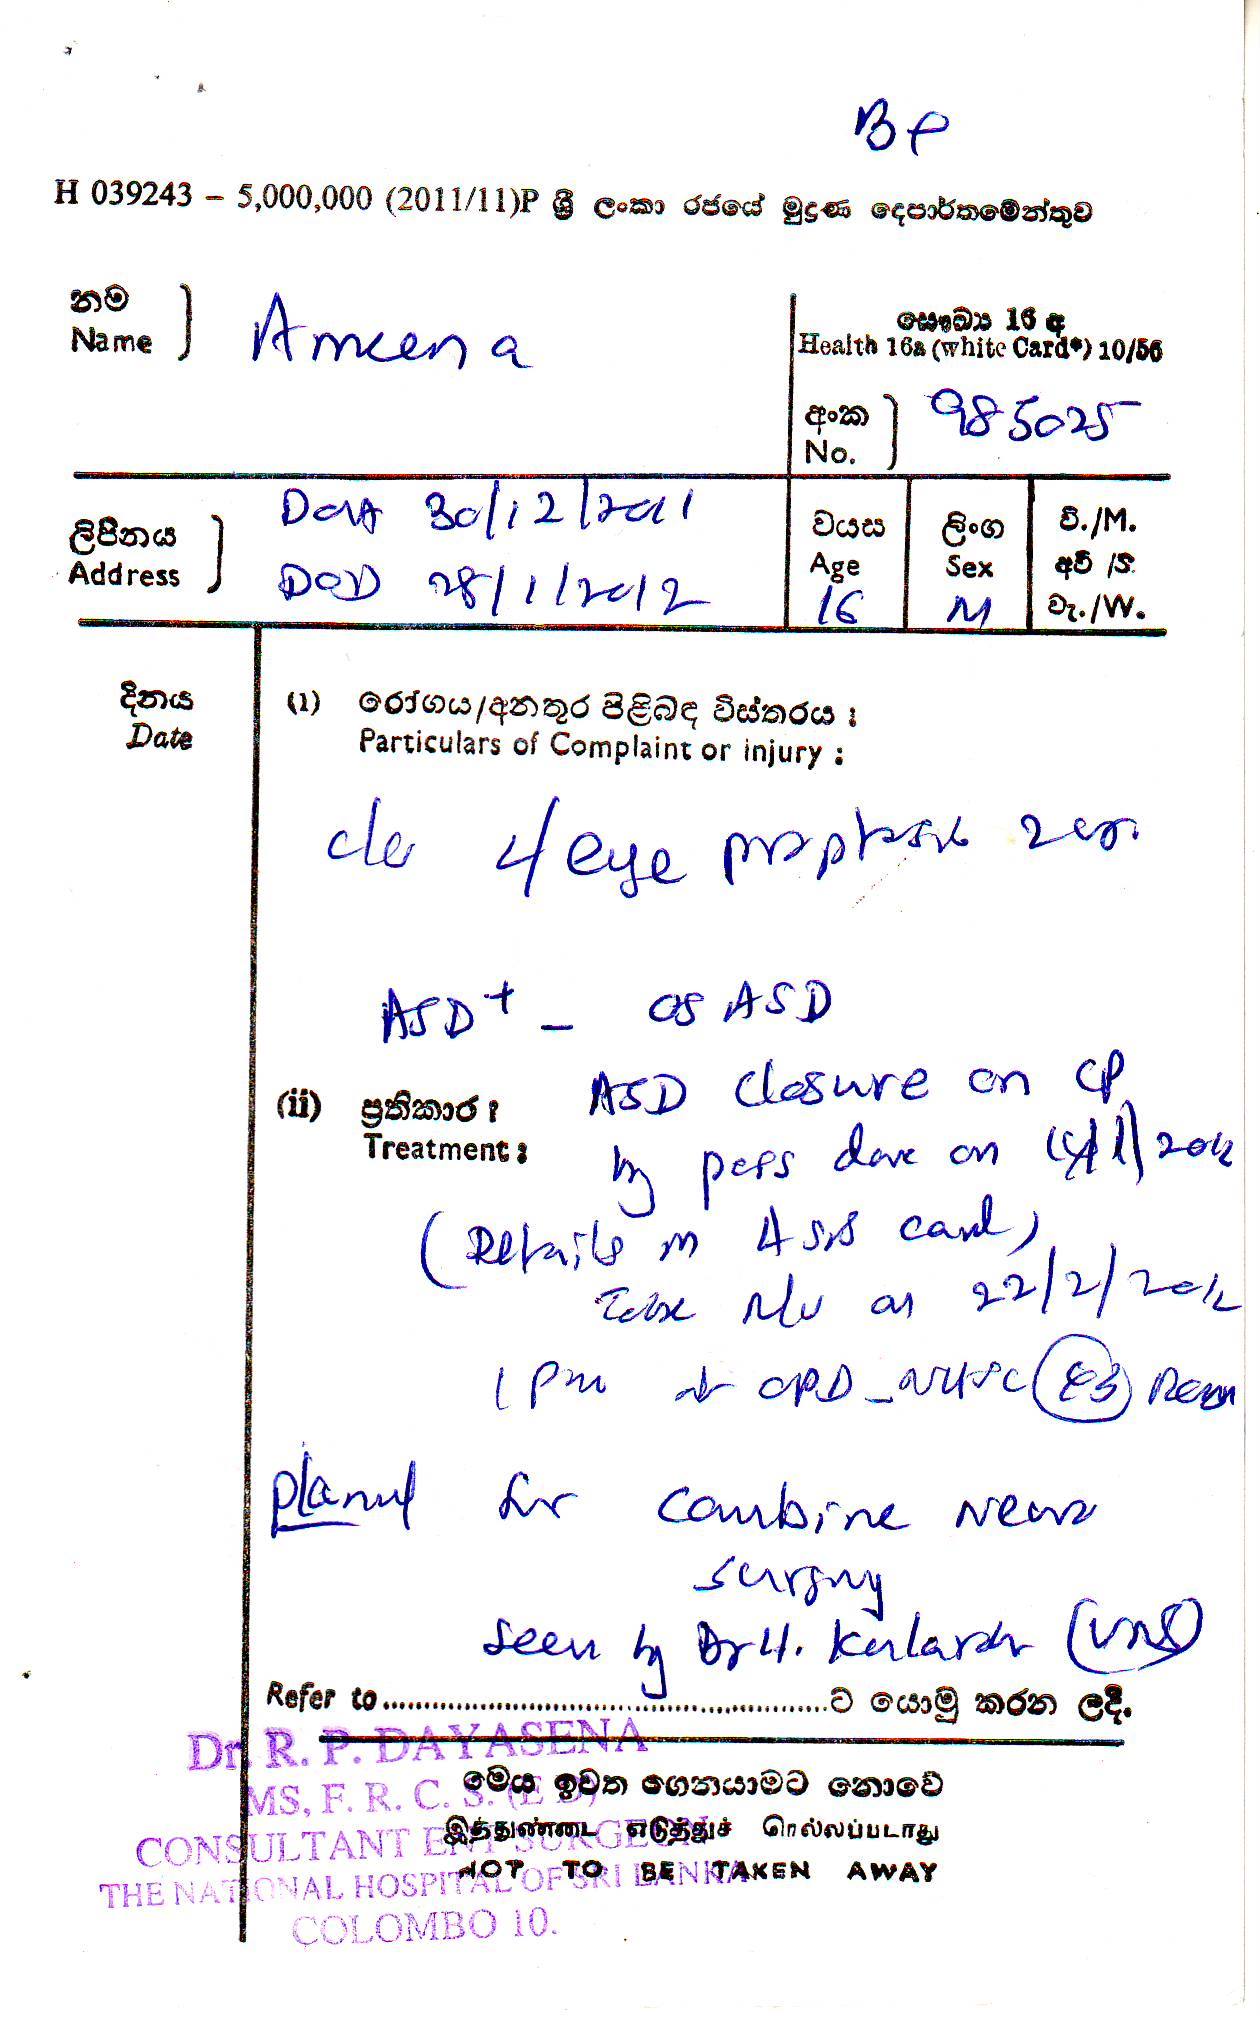 BP
H 039243 – 5,000,000 (2011/11)P ශ්‍රී ලංකා රජයේ මුද්‍රණ දෙපාර්තමේන්තුව
නම
Name
Ameena
සෞඛ්‍ය 16 අ
Health 16a (white Card*) 10/56
අංක
No.
985025
ලිපිනය
Address
DOA 30/12/2011
DOD 28/1/2012
වයස
Age
16
ලිංග
Sex
M
වි./M.
අවි /S.
වැ./W.
දිනය
Date
(i) රෝගය/අනතුර පිළිබඳ විස්තරය :
Particulars of Complaint or injury :
eye
ASD+ – OS ASD
(ii) ප්‍රතිකාර :
Treatment :
ASD closure on CP
by done on
(Details in card)
on 22/2/2012
1 pm at OPD Room
for combine
surgery
seen by Dr H.
Refer to........................ට යොමු කරන ලදී.
Dr. R. P. DAYASENA
MS, F. R. C. S. (ED)
මෙය ඉවත ගෙනයාමට නොවේ
CONSULTANT ENT SURGEON
இத்துண்டை எடுத்துச் செல்லப்படாது
THE NATIONAL HOSPITAL OF SRI LANKA
NOT TO BE TAKEN AWAY
COLOMBO 10.